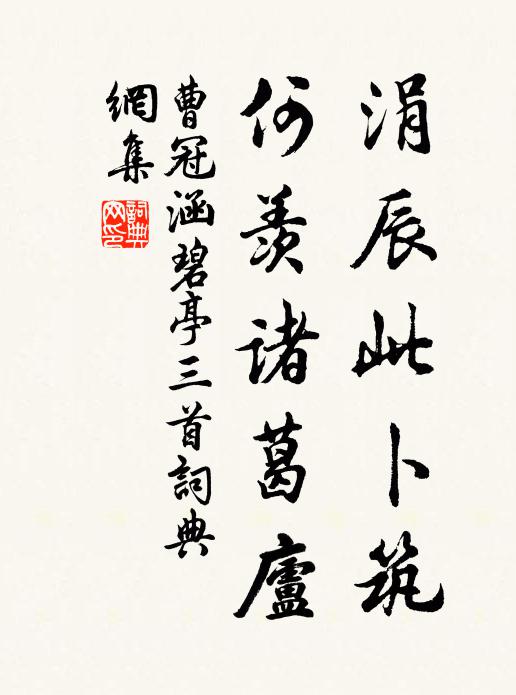 涓辰此卜筑
何羨諸葛廬
曹冠涵碧亭三首詞典
網集
詞典網印